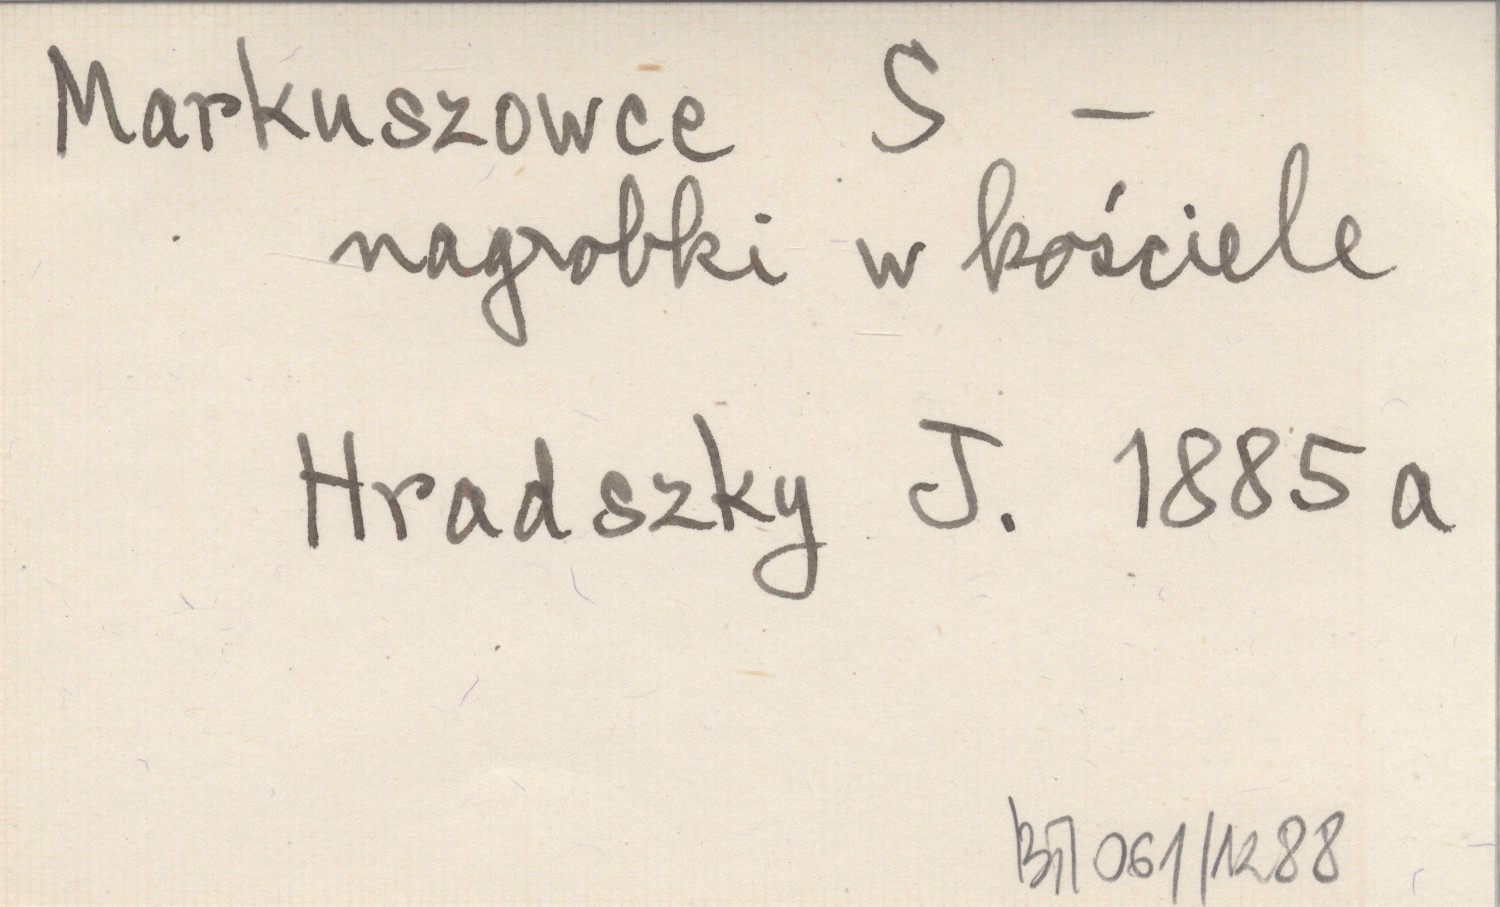 Markuszowce S –
nagrobki w kościele
Hradszky J. 1885 a
061/1288